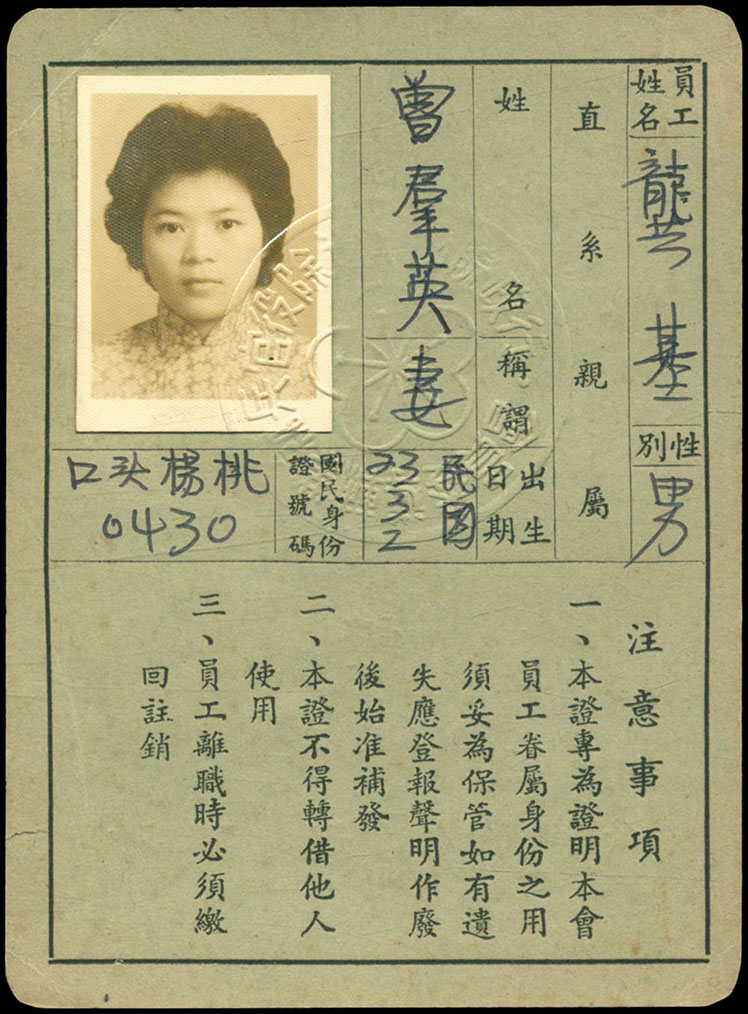 員工
姓名
龔基
性別
男
直系親屬
姓名
稱謂
出生
日期
曾羣英
妻
民国
國民身份
證號碼
口头楊桃
0430
注意事項
一、本證專為證明本會
員工眷屬身份之用
須妥為保管如有遺
失應登報聲明作廢
後始准補發
二、本證不得轉借他人
使用
三、員工離職時必須繳
回註銷